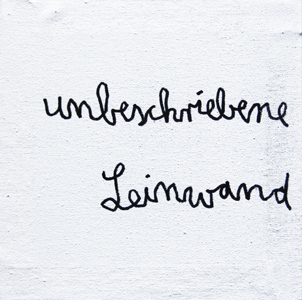 unbeschriebene
Leinwand